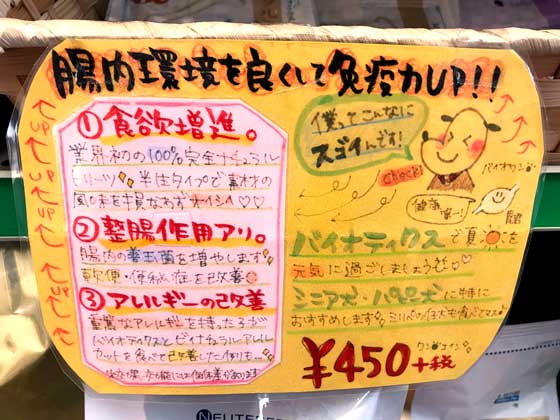 腸内環境を良くして免疫力UP!!
①食欲増進。
業界初の100%完全ナチュラル
トリーツ 半生タイプで素材の
風味を損なわずオイシイ♡♡
②整腸作用アリ。
腸内の善玉菌を増やします
軟便・便秘症を改善
③アレルギーの改善
重篤なアレルギーを持ったコが
バイオティックスとビィナチュラルアレル
カットを食べて改善した例も…
効果には個体差があります
UP UP UP UP
僕ってこんなに
スゴイんです!
check!
バイオワン
健康
唯一!
腸
バイオティックスで夏を
元気に過ごしましょうむ♡
シニア犬・パピー犬に特に
おすすめします
ワンコイン
¥450+税
NEUTERED